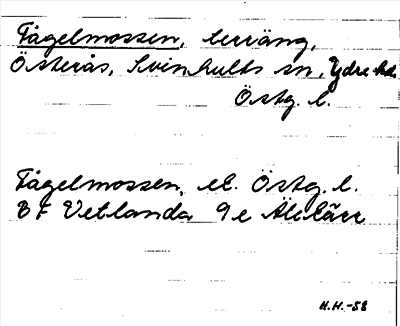 Fågelmossen, terräng,
Österås, Svinhults sn, Ydre hd.
Östg. l.
Fågelmossen, Östg. l.
BF Vetlanda 9e
H.H. -58